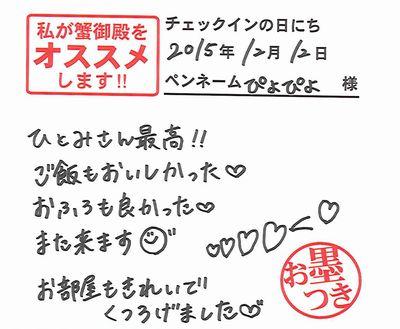 私が蟹御殿を
オススメ
します!!
チェックインの日にち
2015年 12月 12日
ペンネーム ぴよぴよ 様
ひとみさん最高!!
ご飯もおいしかった♡
おふろも良かった♡
また来ます☺
お部屋もきれいで
くつろげました♡
お墨つき